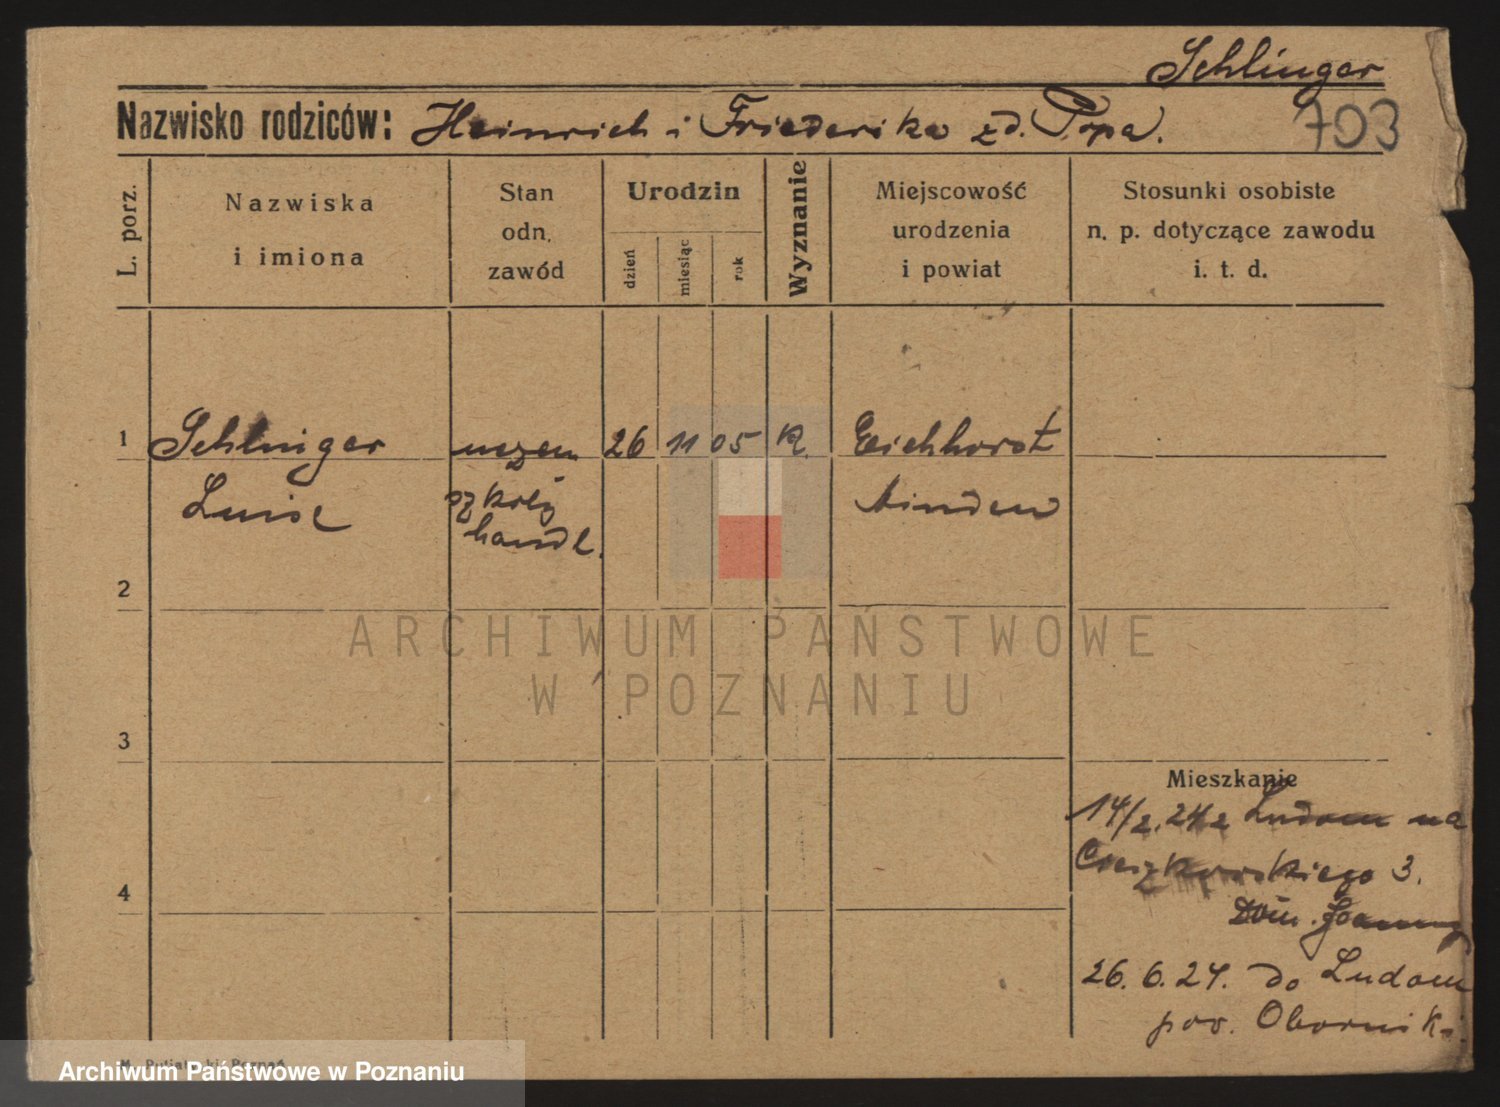 Schlinger
Nazwisko rodziców: Heinrich i Friederika zd. Popa.
703
L. porz.
Nazwiska
i imiona
Stan
odn.
zawód
Urodzin
dzień
miesiąc
rok
Wyznanie
Miejscowość
urodzenia
i powiat
Stosunki osobiste
n. p. dotyczące zawodu
i. t. d.
1 Schlinger uczen 26 11 05 K Eichhorst
Luise szkoły Minden
handl.
2
3
4
Mieszkanie
14/2. 24 z Ludom na
Cieszkowskiego 3.
26. 6. 24. do Ludom
pow. Oborniki.
ARCHIWUM PAŃSTWOWE
W POZNANIU
Archiwum Państwowe w Poznaniu